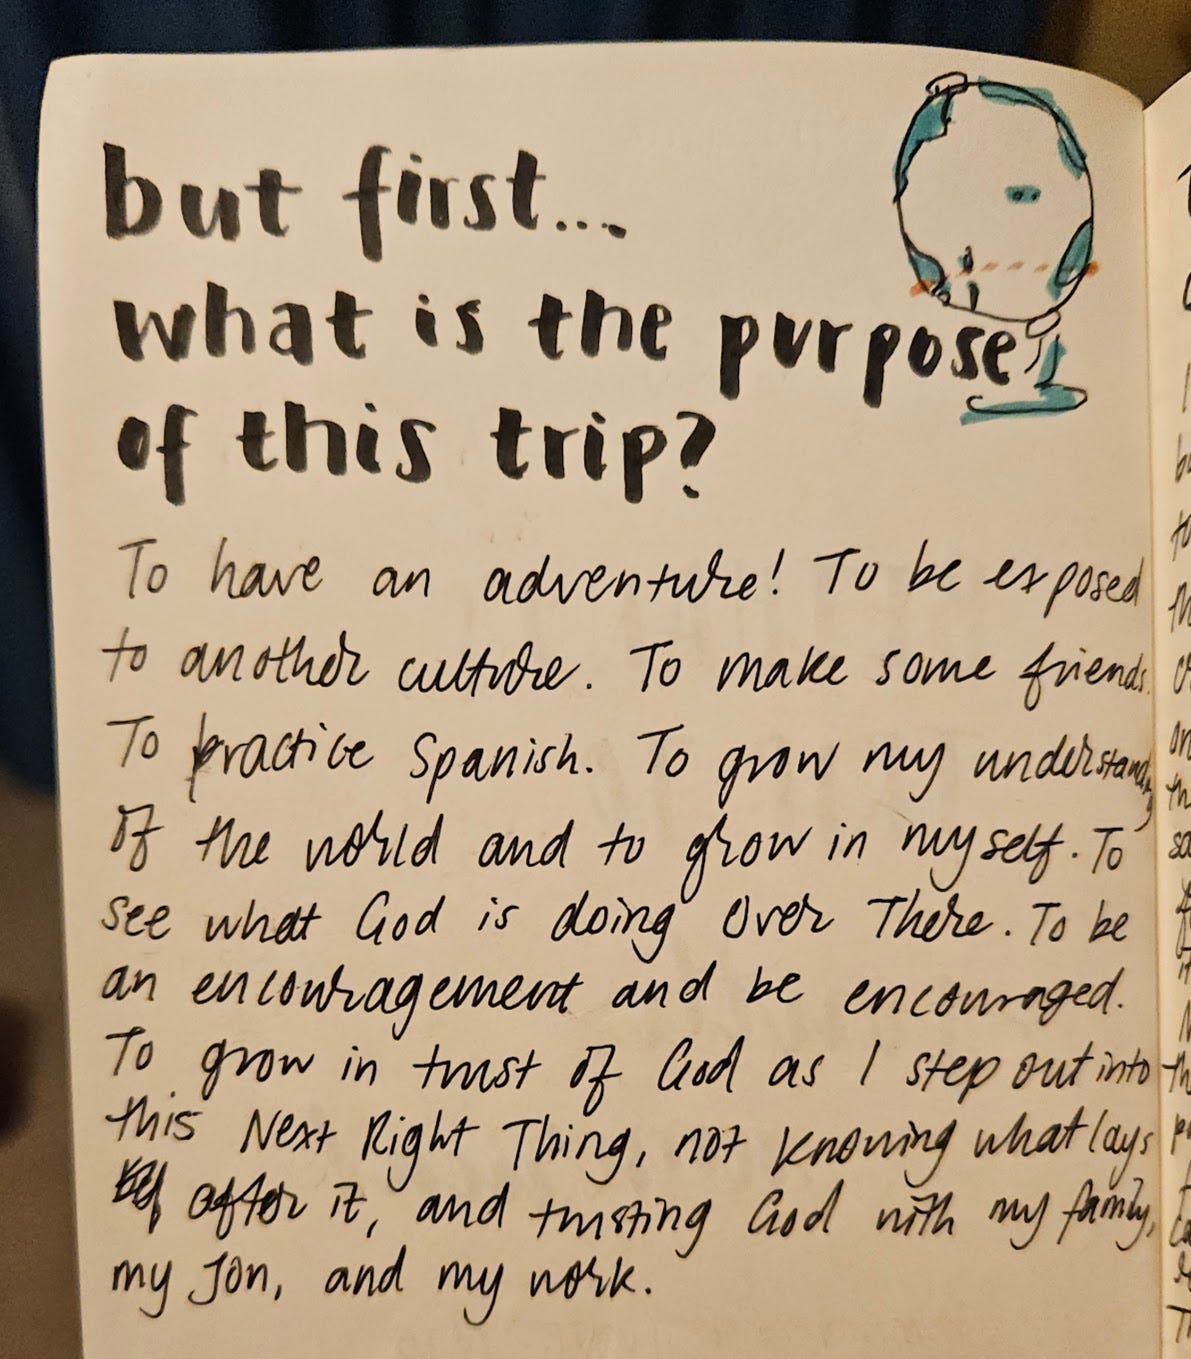 but first...
what is the purpose
of this trip?
To have an adventure! To be exposed
to another culture. To make some friends.
To practice Spanish. To grow my understanding
of the world and to grow in myself. To
see what God is doing Over There. To be
an encouragement and be encouraged.
To grow in trust of God as I step out into
this Next Right Thing, not knowing what lays
after it, and trusting God with my family,
my Jon, and my work.